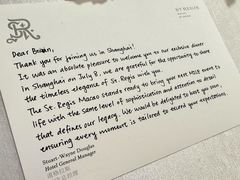 ST REGIS
Dear
Thank you for joining us in Shanghai!
It was an absolute pleasure to welcome you to our exclusive dinner
in Shanghai on July 8, we are grateful for the opportunity to share
the timeless elegance of St. Regis with you.
The St. Regis Macao stands ready to bring your next event to
life with the same level of sophistication and attention to detail
that defines our legacy. We would be delighted to host you,
ensuring every moment is tailored to exceed your expectations.
Stuart-Wayne Douglas
Hotel General Manager